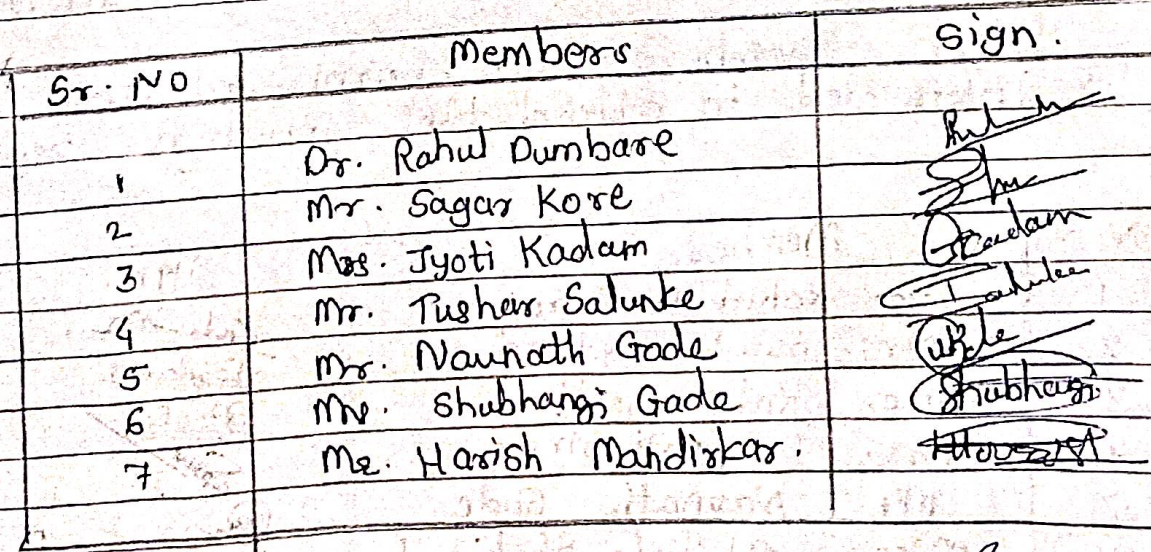 Sr. NO Members Sign.
1 Dr. Rahul Dumbare
2 Mr. Sagar Kore
3 Mrs. Jyoti Kadam Kadam
4 Mr. Tushar Salunke
5 Mr. Navnath Gade
6 Shubhangi Gade Shubhangi
7 Mr. Harish Mandirkar.